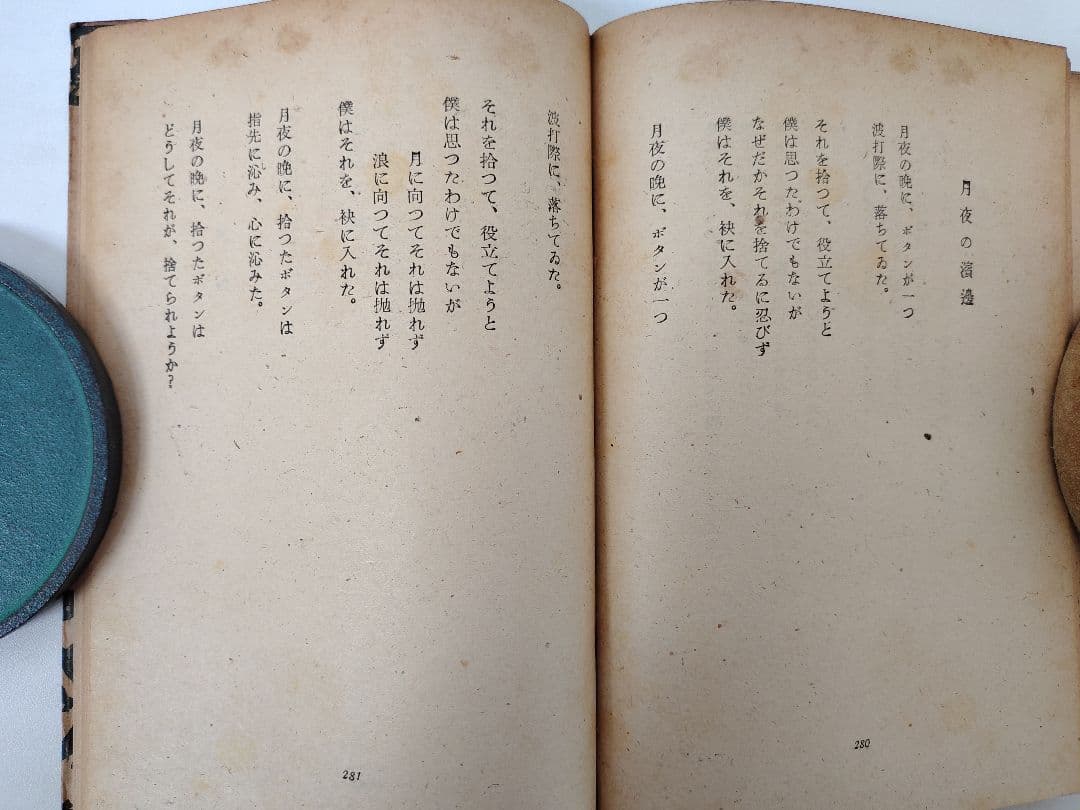 月夜の濱邊
月夜の晩に、ボタンが一つ
波打際に、落ちてゐた。
それを拾つて、役立てようと
僕は思つたわけでもないが
なぜだかそれを捨てるに忍びず
僕はそれを、袂に入れた。
月夜の晩に、ボタンが一つ
280
波打際に、落ちてゐた。
それを拾つて、役立てようと
僕は思つたわけでもないが
月に向つてそれは抛れず
浪に向つてそれは抛れず
僕はそれを、袂に入れた。
月夜の晩に、拾つたボタンは
指先に沁み、心に沁みた。
月夜の晩に、拾つたボタンは
どうしてそれが、捨てられようか?
281